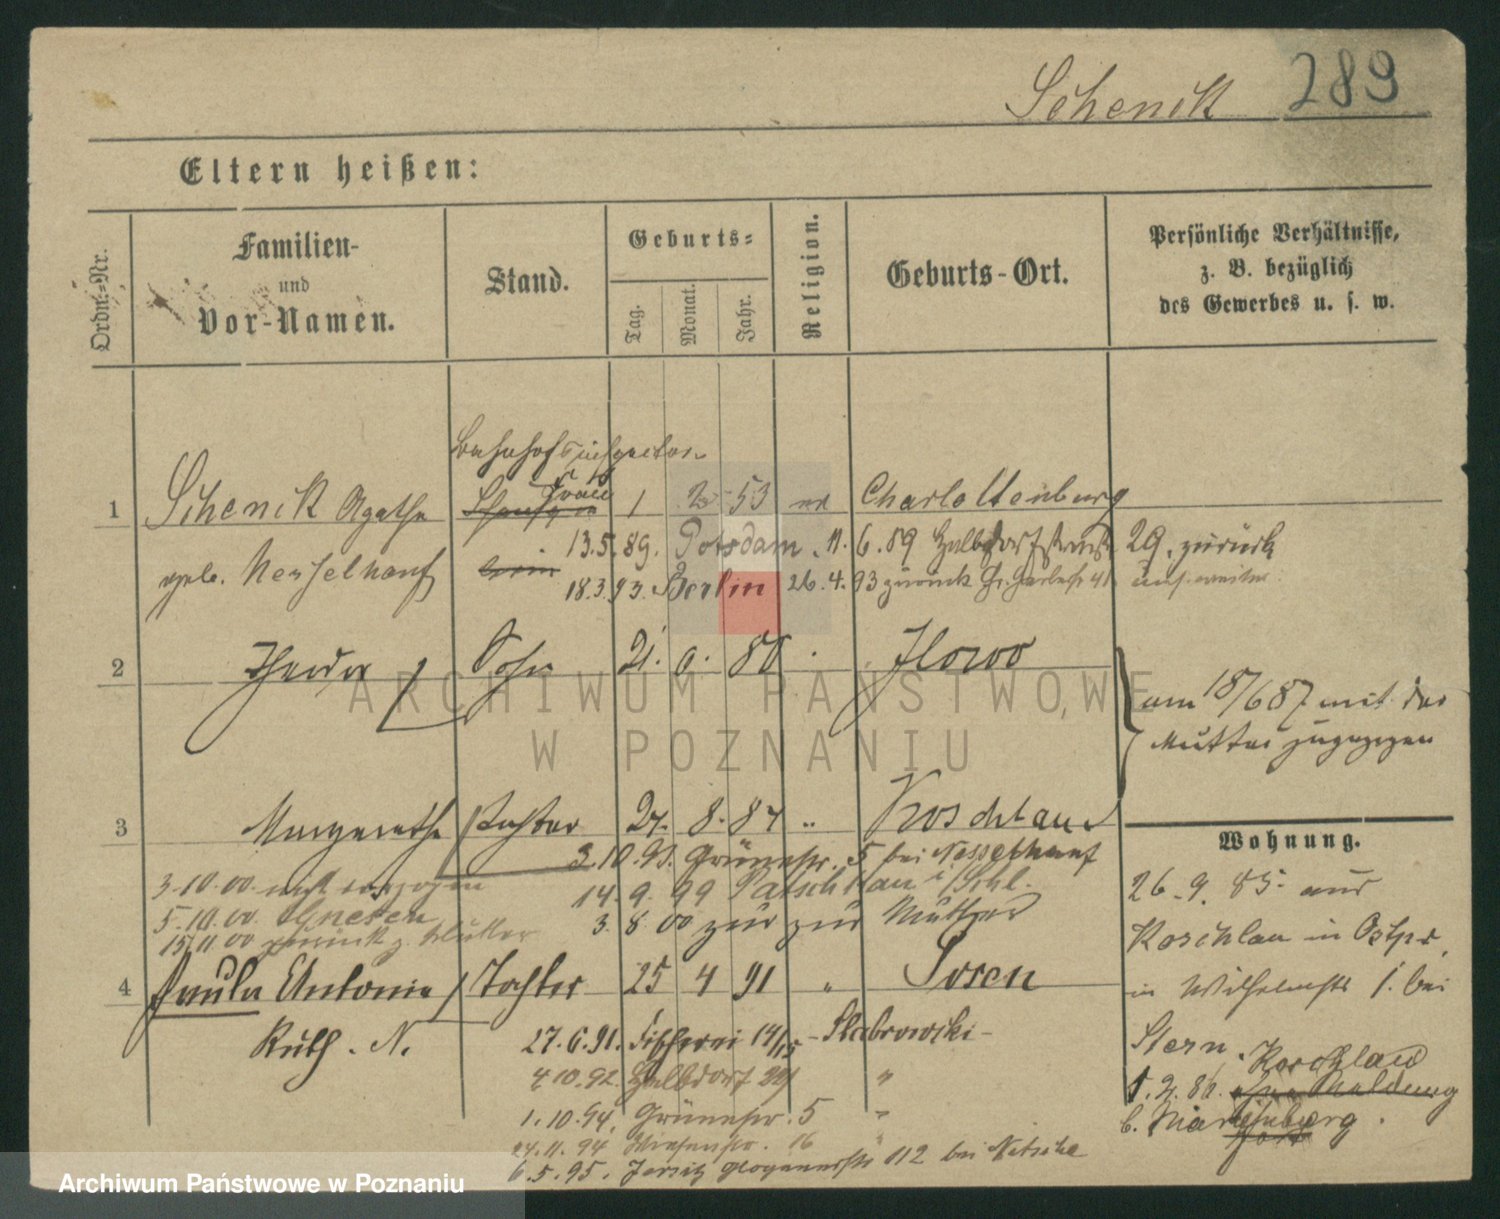 Schenck 289
Eltern heißen:
Ordn.-Nr.
Familien-
und
Vor-Namen.
Stand.
Geburts-
Tag.
Monat.
Jahr.
Religion.
Geburts-Ort.
Persönliche Verhältnisse,
z. B. bezüglich
des Gewerbes u. s. w.
Bahnhofsinspektor
Frau
1 Schenck Agathe 1 2 53 Charlottenburg
13.5.89. Potsdam 11.6.89 Halbdorfstraße 29. zurück
geb. Nesselhauf
18.3.93. Berlin 26.4.93 zurück
2 Sohn 21. 80 Ilowo
am 18/6 87 mit der
Mutter zugezogen
3 Margarethe Tochter 27. 8. 87 " Koschlau
Wohnung.
3.10.93. Grünestr. 5 bei Nesselhauf
3.10.00
14.9.99 Patschkau i/Schl.
26.9.85. aus
5.10.00. Gnesen
3.8.00 zur Mutter
15.11.00 zurück z. Mutter
Koschlau in Ostpr.
4 Paula Antonie Tochter 25 4 91 " Posen
in Wilhelmstr 1. bei
Ruth. N.
27.6.91. Fischerei 14/15 - Slabrowski -
Stern. Koschlau
4.10.92. Halbdorf "
1.10.94. Grünestr. 5 "
b. Marienburg
24.11.94 Wiesenstr. 16 "
6.5.95. Jersitz Glogauerstr 112 bei Nitsche
ARCHIWUM PAŃSTWOWE
W POZNANIU
Archiwum Państwowe w Poznaniu